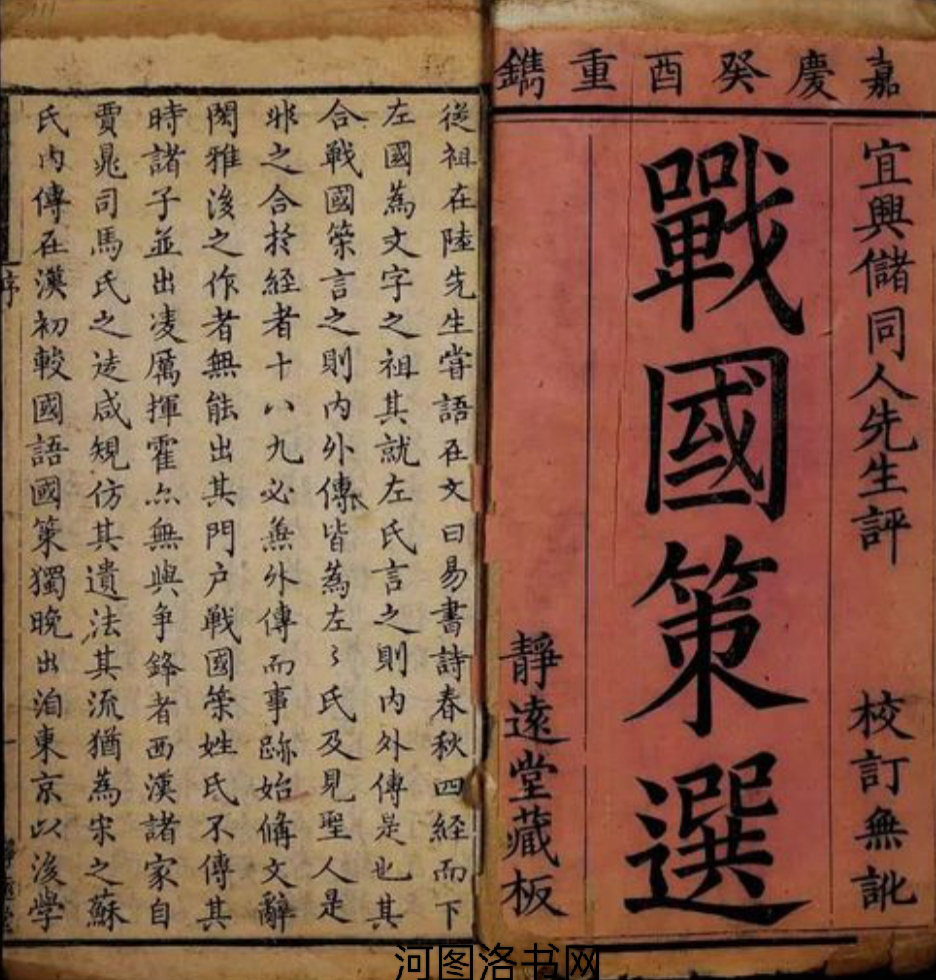 嘉慶癸酉重鐫
宜興儲同人先生評 校訂無訛
戰國策選
靜遠堂藏板
從祖在陸先生嘗語在文曰易書詩春秋四經而下
左國為文字之祖其就左氏言之則內外傳是也其
合戰國策言之則內外傳皆為左氏及見聖人是
非之合於經者十八九必無外傳而事跡始備文辭
閎雅後之作者無能出其門户戰國策姓氏不傳其
時諸子並出凌厲揮霍點無與爭鋒者西漢諸家自
賈晁司馬氏之徒咸規仿其遺法其流猶為宋之蘇
氏內傳在漢初較國語國策獨晚出洎東京以後學
序
河图洛书网